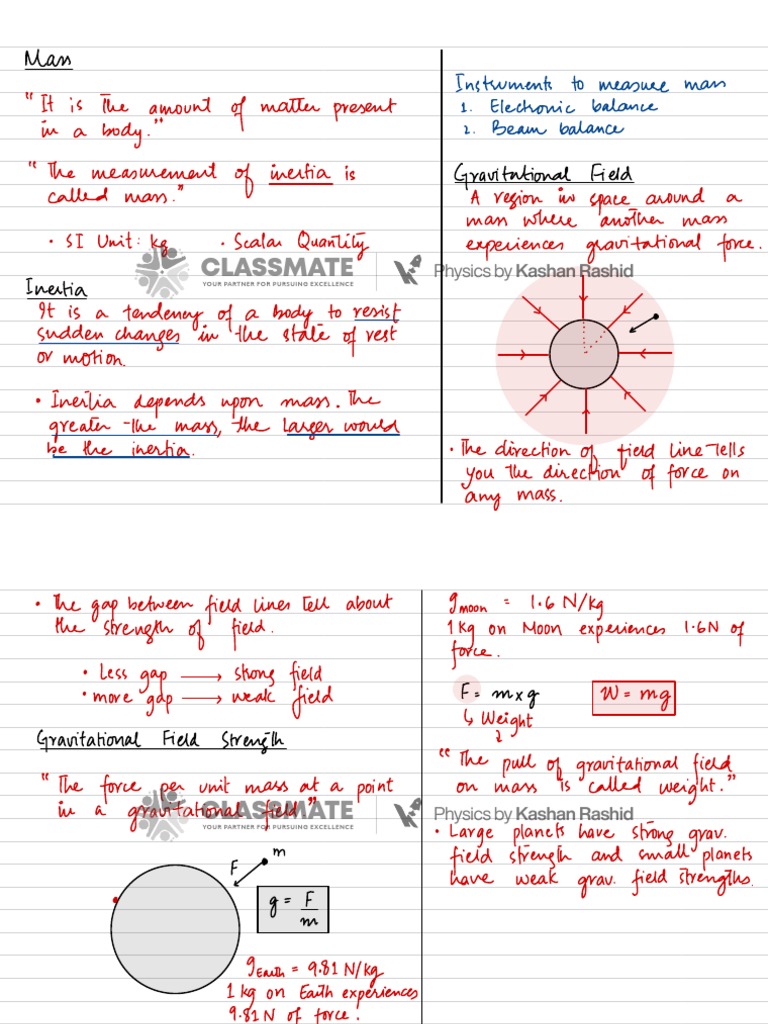 Mass
"It is the amount of matter present
in a body."
"The measurement of inertia is
called mass."
• SI Unit: kg • Scalar Quantity
Inertia
It is a tendency of a body to resist
sudden changes in the state of rest
or motion.
• Inertia depends upon mass. The
greater the mass, the larger would
be the inertia.
Instruments to measure mass
1. Electronic balance
2. Beam balance
Gravitational Field
A region in space around a
mass where another mass
experiences gravitational force.
CLASSMATE
YOUR PARTNER FOR PURSUING EXCELLENCE
Physics by Kashan Rashid
• The direction of field line tells
you the direction of force on
any mass.
• The gap between field lines tell about
the strength of field.
• Less gap → strong field
• more gap → weak field
Gravitational Field Strength
"The force per unit mass at a point
in a gravitational field."
F m
g = F/m
gEarth = 9.81 N/kg
1 kg on Earth experiences
9.81 N of force.
gmoon = 1.6 N/kg
1 kg on Moon experiences 1.6N of
force.
F = m x g W = mg
↳ Weight
"The pull of gravitational field
on mass is called weight."
CLASSMATE
YOUR PARTNER FOR PURSUING EXCELLENCE
Physics by Kashan Rashid
• Large planets have strong grav.
field strength and small planets
have weak grav. field strengths.